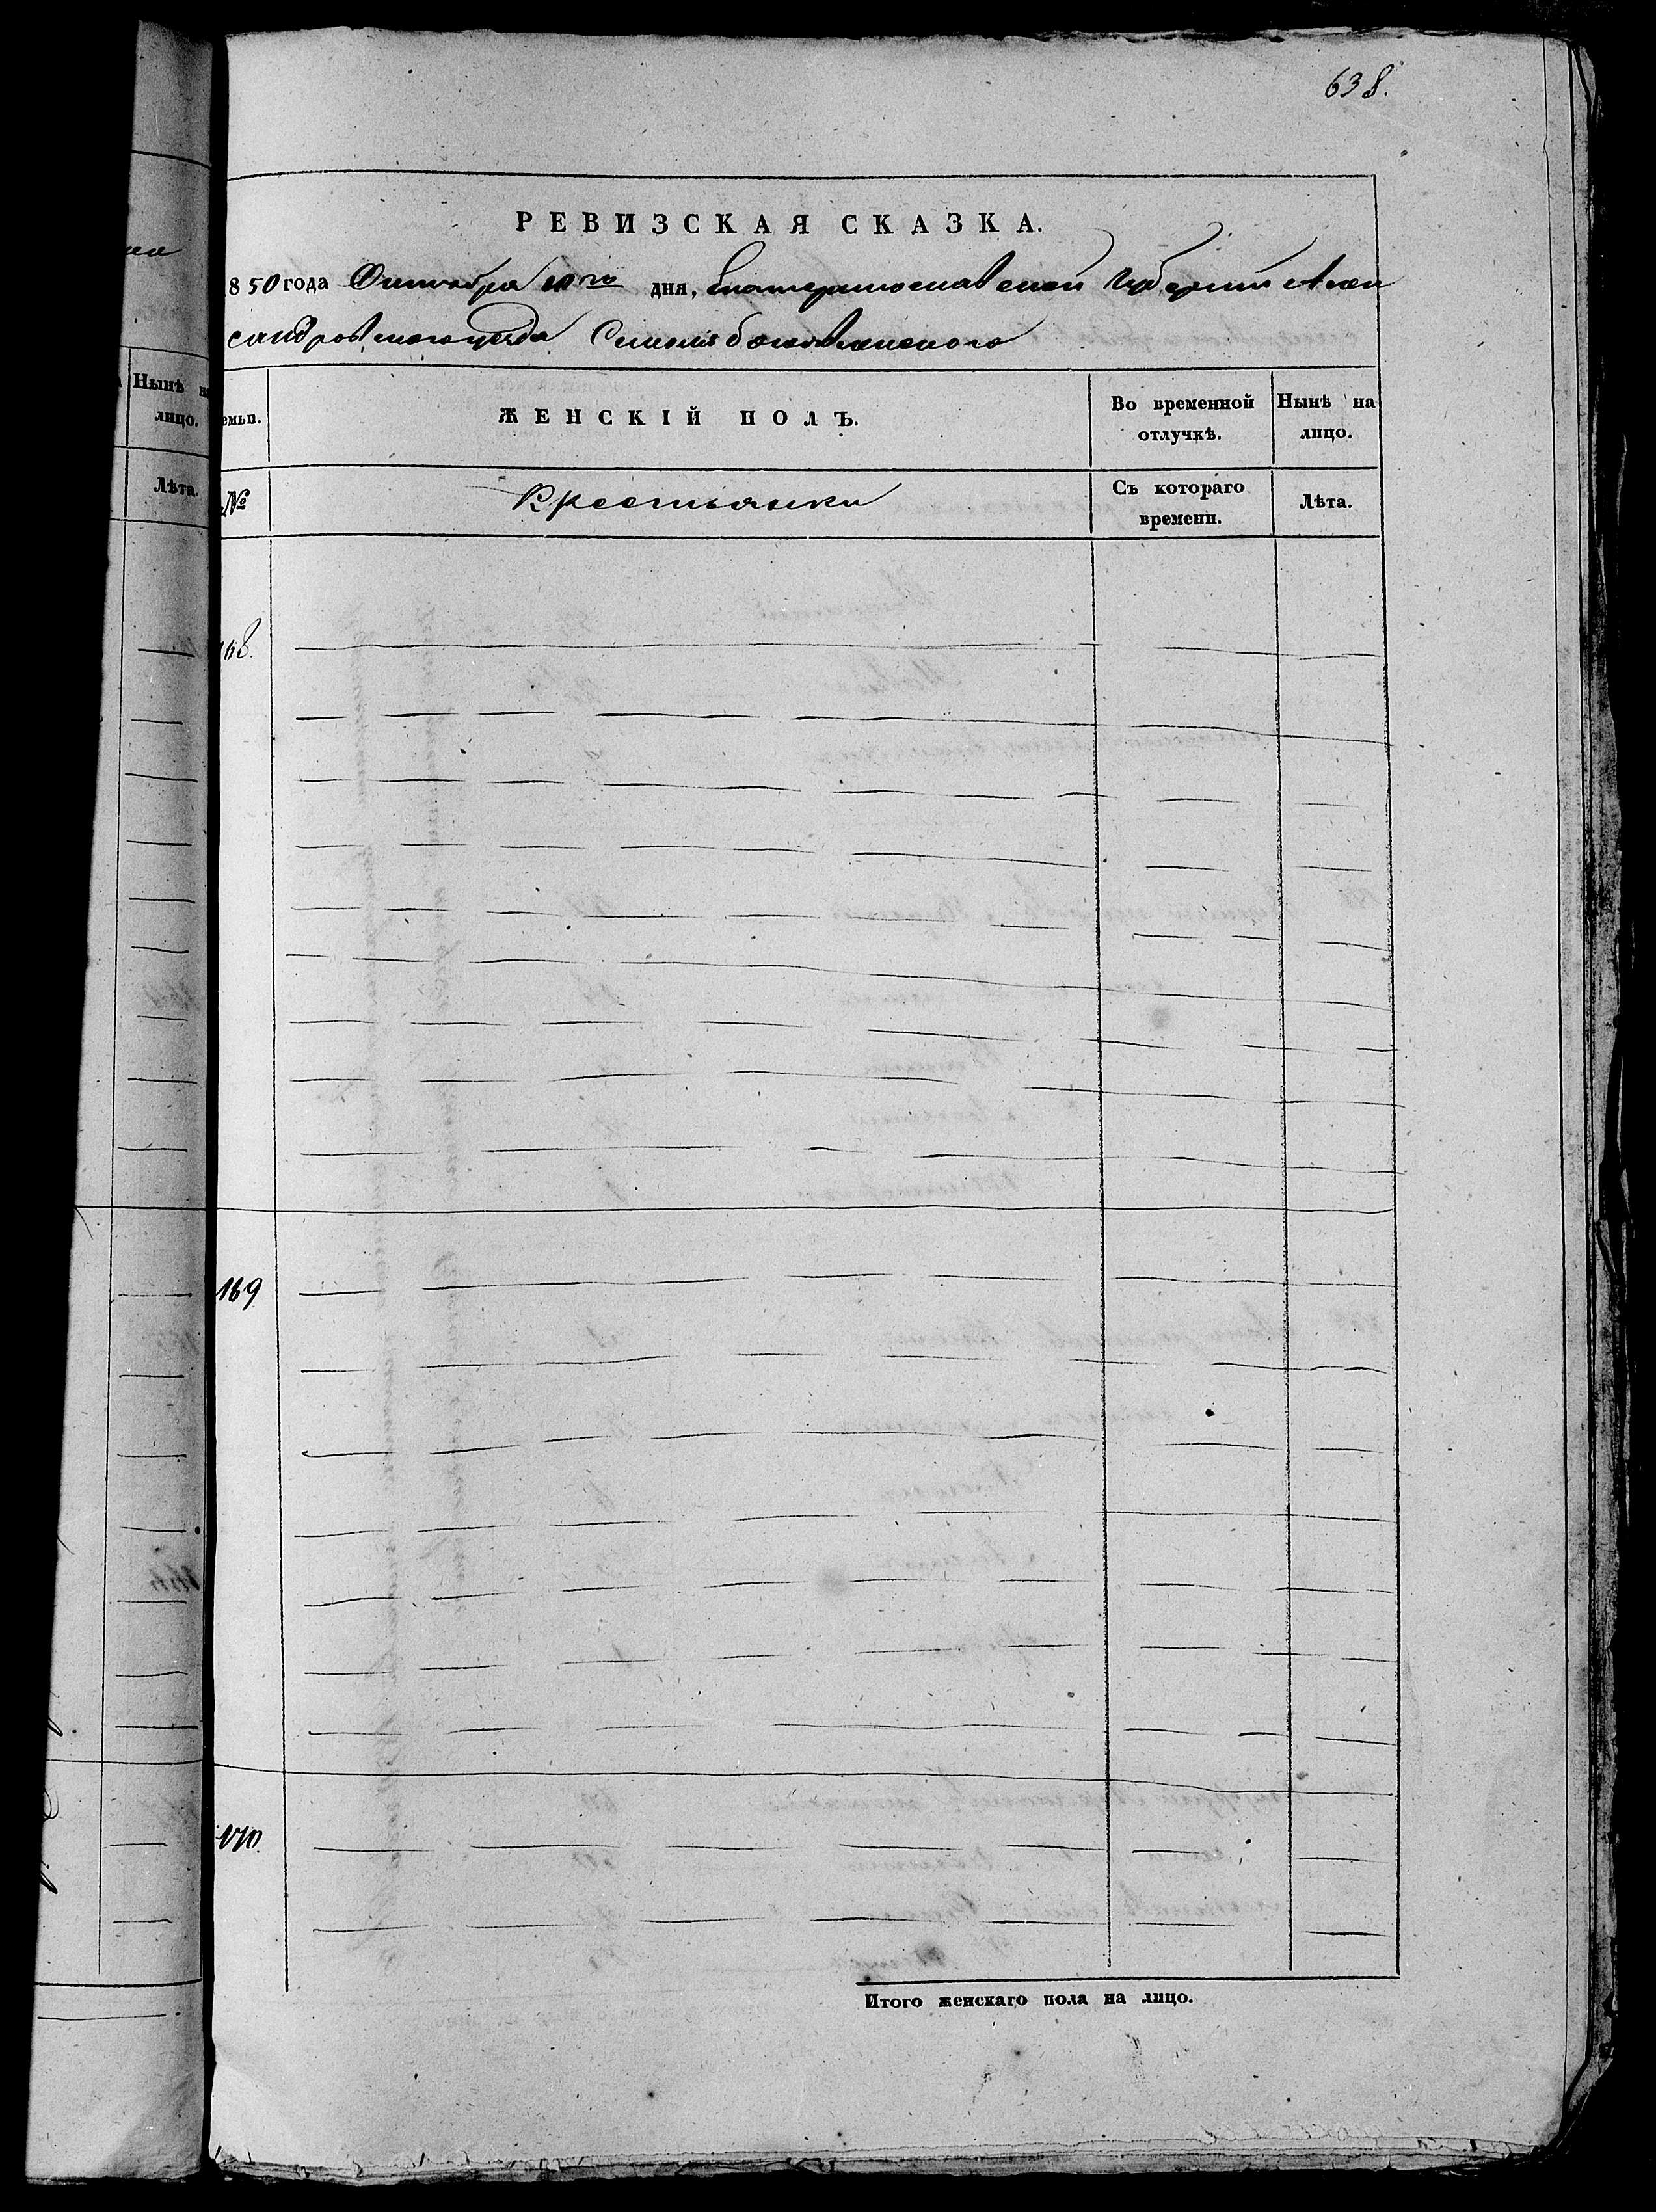 638.
РЕВИЗСКАЯ СКАЗКА.
850 года Октября 10го дня, Екатеринославской Губернии Алек
сандровского уезда Селения богоявленского
Нынѣ
лицо.
Лѣта.
емьи.
ЖЕНСКІЙ ПОЛЪ.
Во временной
отлучкѣ.
Нынѣ на
лицо.
№
Крестьянки
Съ котораго
времени.
Лѣта.
168.
169
170.
Итого женскаго пола на лицо.